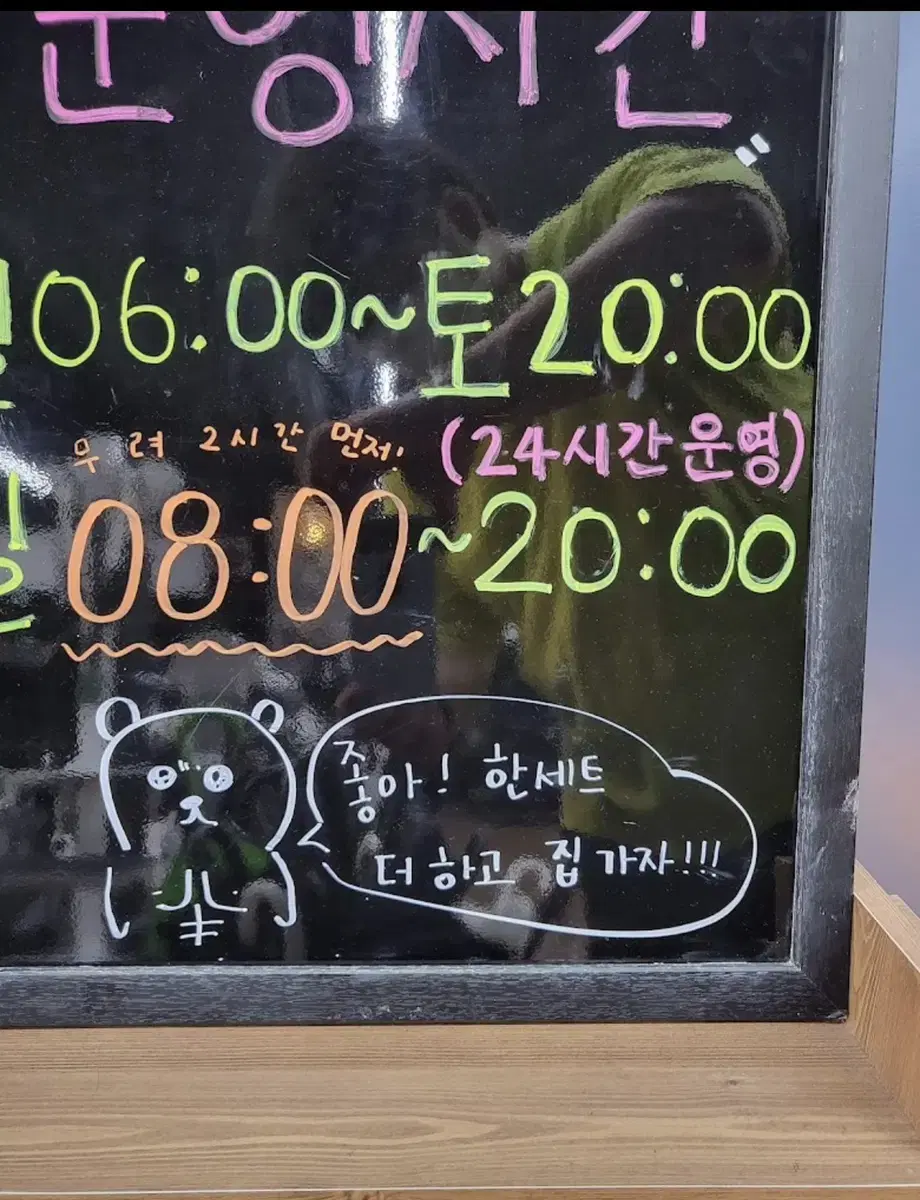 운영시간
06:00~토 20:00
무려 2시간 먼저!
(24시간 운영)
일 08:00~20:00
좋아! 한세트
더 하고 집 가자!!!